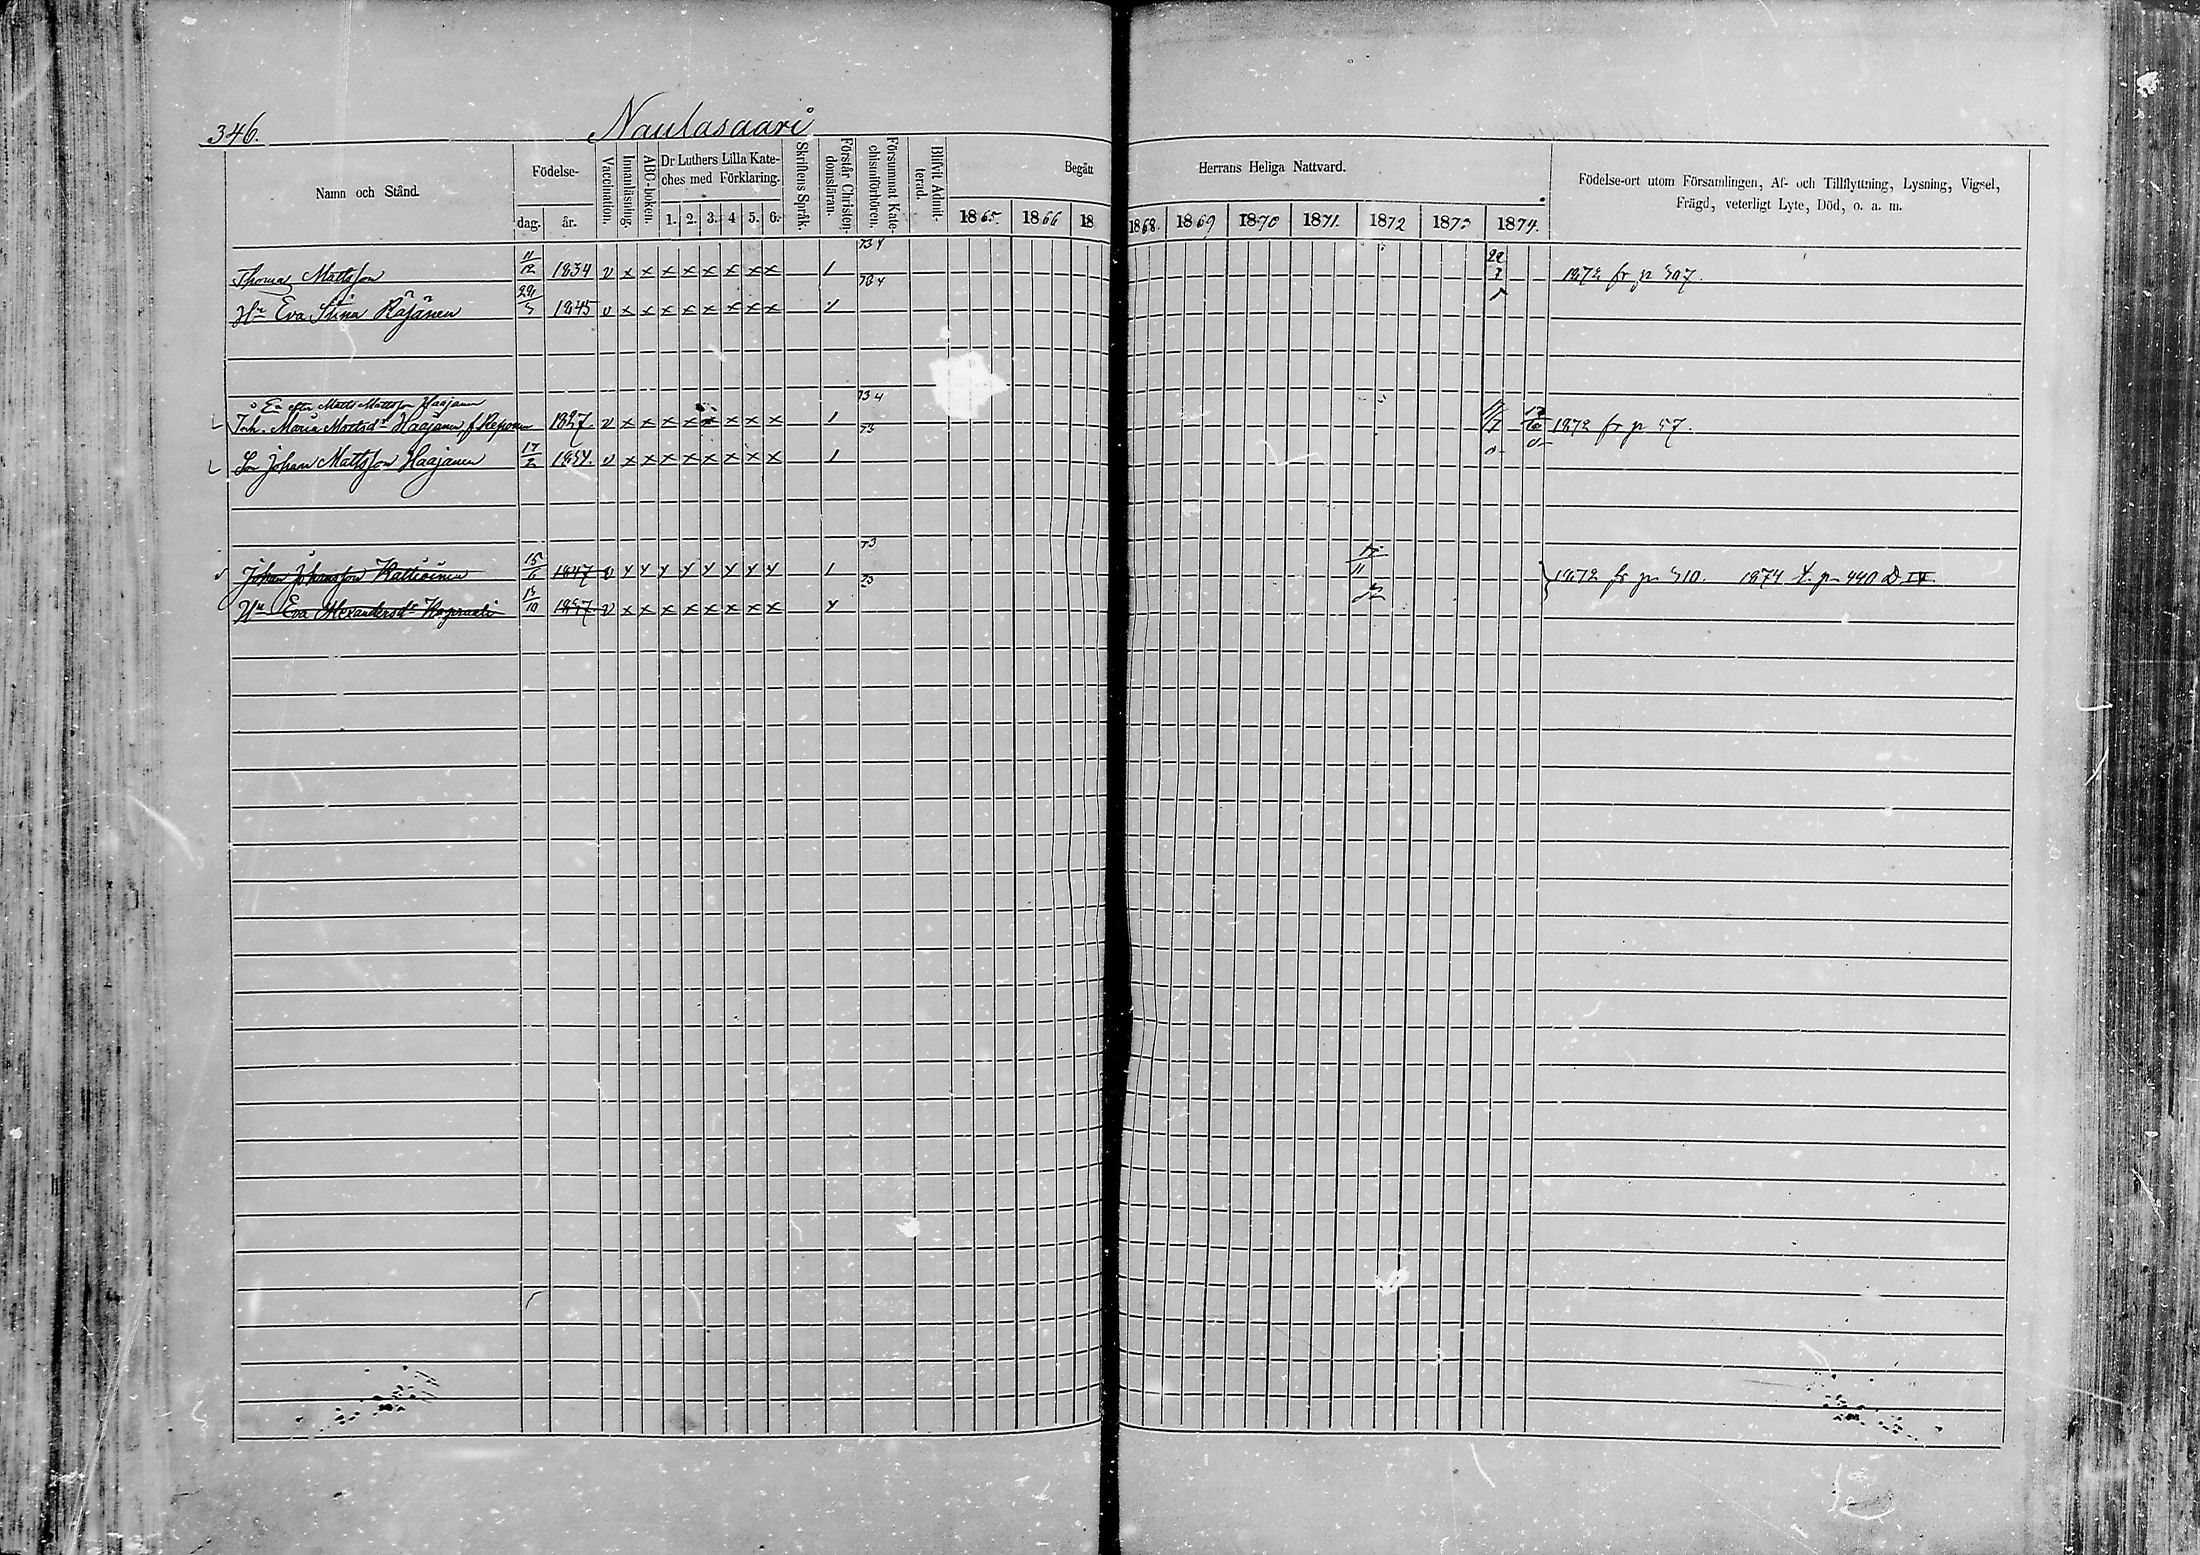 346. Naulasaari
Namn och Stånd. Födelse- dag. år. Vaccination. Innanläsning. ABC-boken. Dr Luthers Lilla Kateches med Förklaring. 1. 2. 3. 4 5. 6. Skriftens Språk. Förstår Christendomsläran. Försummat Katechismiförhören. Blifvit Admitterad. Begått Herrans Heliga Nattvard. Födelse-ort utom Församlingen, Af- och Tillflyttning, Lysning, Vigsel, Frägd, veterligt Lyte, Död, o. a. m.
1865. 1866 18 1868. 1869 1870 1871. 1872 1873 1874.
Thomas Mattsson 11/12 1834 v x x x x x x x x 1 73 4 1872 fr p 307.
Hu Eva Stina Räjänen 1845 v x x x x x x x x 1 73 4
Ea efter Matts Mattsson Haajanen
Inh. Maria Mattsdr Haajanen f Reponen 1827. v x x x x x x x x 1 73 4 1872 fr p 57.
Son Johan Mattsson Haajanen 17/2 1854. v x x x x x x x x 1 73
Johan Johansson Kattisinen 15/6 1847 v y y y y y y y y 1 73 1872 fr p 310. 1874 t. p 440 D IV.
Hu Eva Alexandersdr Kapraali 1847 v x x x x x x x x 73